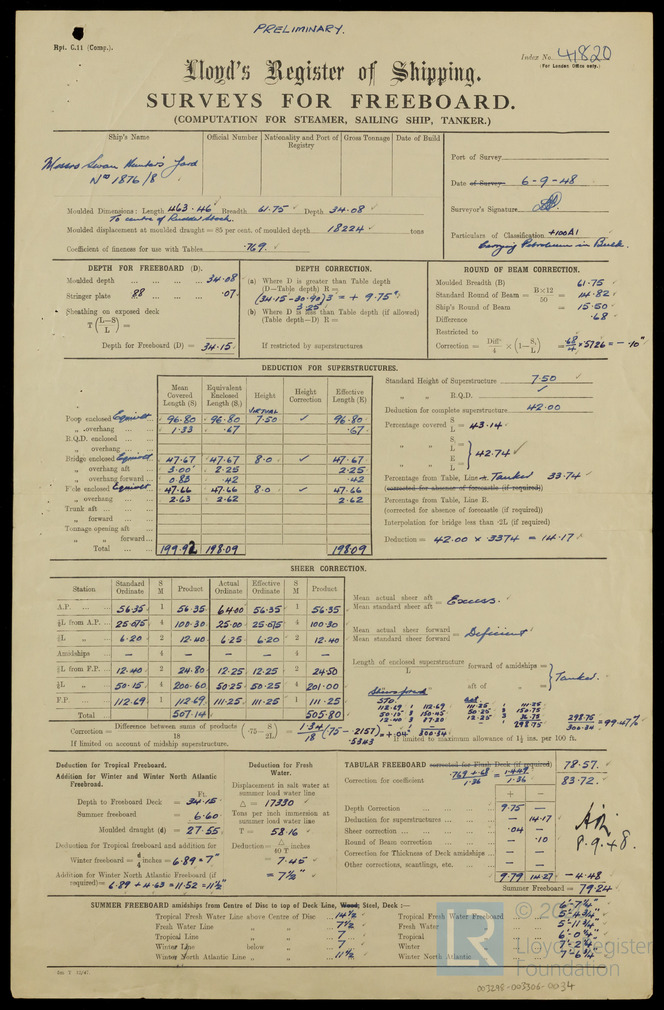 PRELIMINARY.
Rpt. C.11 (Comp.).
Index No. 41820
(For London Office only.)
Lloyd's Register of Shipping.
SURVEYS FOR FREEBOARD.
(COMPUTATION FOR STEAMER, SAILING SHIP, TANKER.)
Ship's Name Official Number Nationality and Port of Registry Gross Tonnage Date of Build
Messrs Swan Hunter's Yard
Nos 1876/8
Port of Survey
Date of Survey 6-9-48
Surveyor's Signature
Particulars of Classification +100A1
Carrying Petroleum in Bulk.
Moulded Dimensions: Length 463.46 Breadth 61.75 Depth 34.08
To centre of Rudder Stock.
Moulded displacement at moulded draught = 85 per cent. of moulded depth 18224 tons
Coefficient of fineness for use with Tables .769
DEPTH FOR FREEBOARD (D).
Moulded depth 34.08
Stringer plate .88 .07
Sheathing on exposed deck
T (L-S/L) =
Depth for Freeboard (D) = 34.15
DEPTH CORRECTION.
(a) Where D is greater than Table depth
(D-Table depth) R =
(34.15-30.90) 3 = + 9.75"
3.25
(b) Where D is less than Table depth (if allowed)
(Table depth-D) R =
If restricted by superstructures
ROUND OF BEAM CORRECTION.
Moulded Breadth (B) 61.75
Standard Round of Beam = B×12/50 = 14.82
Ship's Round of Beam = 15.50
Difference .68
Restricted to
Correction = Diff/4 × (1-S/L) = .68/4 × .5726 = - .10"
DEDUCTION FOR SUPERSTRUCTURES.
Mean Covered Length (S) Equivalent Enclosed Length (S₁) Height Height Correction Effective Length (E)
Poop enclosed Equivalt 96.80 96.80 VIRTUAL 7.50 ✓ 96.80
„ overhang 1.33 .67 .67
R.Q.D. enclosed
„ overhang
Bridge enclosed Equivalt 47.67 47.67 8.0 ✓ 47.67
„ overhang aft 3.00 2.25 2.25
„ overhang forward .83 .42 .42
F'cle enclosed Equivalt 47.66 47.66 8.0 ✓ 47.66
„ overhang 2.63 2.62 2.62
Trunk aft
„ forward
Tonnage opening aft
„ „ forward
Total 199.92 198.09 198.09
Standard Height of Superstructure 7.50
„ „ R.Q.D. ✓
Deduction for complete superstructure 42.00
Percentage covered S/L = 43.14
„ „ S₁/L =
„ „ E/L = } 42.74
Percentage from Table, Line A. Tanker 33.74
(corrected for absence of forecastle (if required))
Percentage from Table, Line B.
(corrected for absence of forecastle (if required))
Interpolation for bridge less than ·2L (if required)
Deduction = 42.00 × .3374 = 14.17
SHEER CORRECTION.
Station Standard Ordinate S M Product Actual Ordinate Effective Ordinate S M Product
A.P. 56.35 1 56.35 64.00 56.35 1 56.35
⅙L from A.P. 25.075 4 100.30 25.00 25.075 4 100.30
⅓L „ 6.20 2 12.40 6.25 6.20 2 12.40
Amidships — 4 — — — 4 —
⅓L from F.P. 12.40 2 24.80 12.25 12.25 2 24.50
⅙L „ 50.15 4 200.60 50.25 50.25 4 201.00
F.P. 112.69 1 112.69 111.25 111.25 1 111.25
Total 507.14 505.80
Mean actual sheer aft / Mean standard sheer aft = Excess.
Mean actual sheer forward / Mean standard sheer forward = Deficient
Length of enclosed superstructure / L forward of amidships =
aft of „ = } Tanker.
Sheer for'd
STD. Act.
112.69 1 112.69 111.25 1 111.25
50.15 3 150.45 50.25 3 150.75
12.40 3 37.20 12.25 3 36.75
300.34 298.75
298.75/300.34 = 99.47%
Correction = Difference between sums of products/18 (·75 - S/2L) = 1.34/18 (.75 - .2157) = + .04"
.5343
If limited on account of midship superstructure.
If limited to maximum allowance of 1½ ins. per 100 ft.
Deduction for Tropical Freeboard.
Addition for Winter and Winter North Atlantic Freeboard.
Ft.
Depth to Freeboard Deck = 34.15
Summer freeboard = 6.60
Moulded draught (d) = 27.55
Deduction for Tropical freeboard and addition for
Winter freeboard = d/4 inches = 6.89 = 7"
Addition for Winter North Atlantic Freeboard (if required) = 6.89 + 4.63 = 11.52 = 11½"
Deduction for Fresh Water.
Displacement in salt water at summer load water line
△ = 17330
Tons per inch immersion at summer load water line
T = 58.16
Deduction = △/40 T inches
= 7.45
= 7½"
TABULAR FREEBOARD corrected for Flush Deck (if required) 78.57
Correction for coefficient .769 + .68/1.36 = 1.449/1.36 83.72
+ —
Depth Correction 9.75 —
Deduction for superstructures — 14.17
Sheer correction .04 —
Round of Beam correction — .10
Correction for Thickness of Deck amidships — —
Other corrections, scantlings, etc. — —
9.79 14.27 - 4.48
Summer Freeboard = 79.24
8.9.48.
SUMMER FREEBOARD amidships from Centre of Disc to top of Deck Line, Wood, Steel, Deck :— 6'-7¼"
Tropical Fresh Water Line above Centre of Disc 14½
Fresh Water Line „ „ 7½
Tropical Line „ „ 7
Winter Line below „ 7
Winter North Atlantic Line „ „ 11½
Tropical Fresh Water Freeboard 5'-4¾"
Fresh Water „ 5'-11¾"
Tropical „ 6'-0¼"
Winter „ 7'-2¼"
Winter North Atlantic „ 7'-6¾"
LR
Lloyd's Register
Foundation
003298-003306-0034